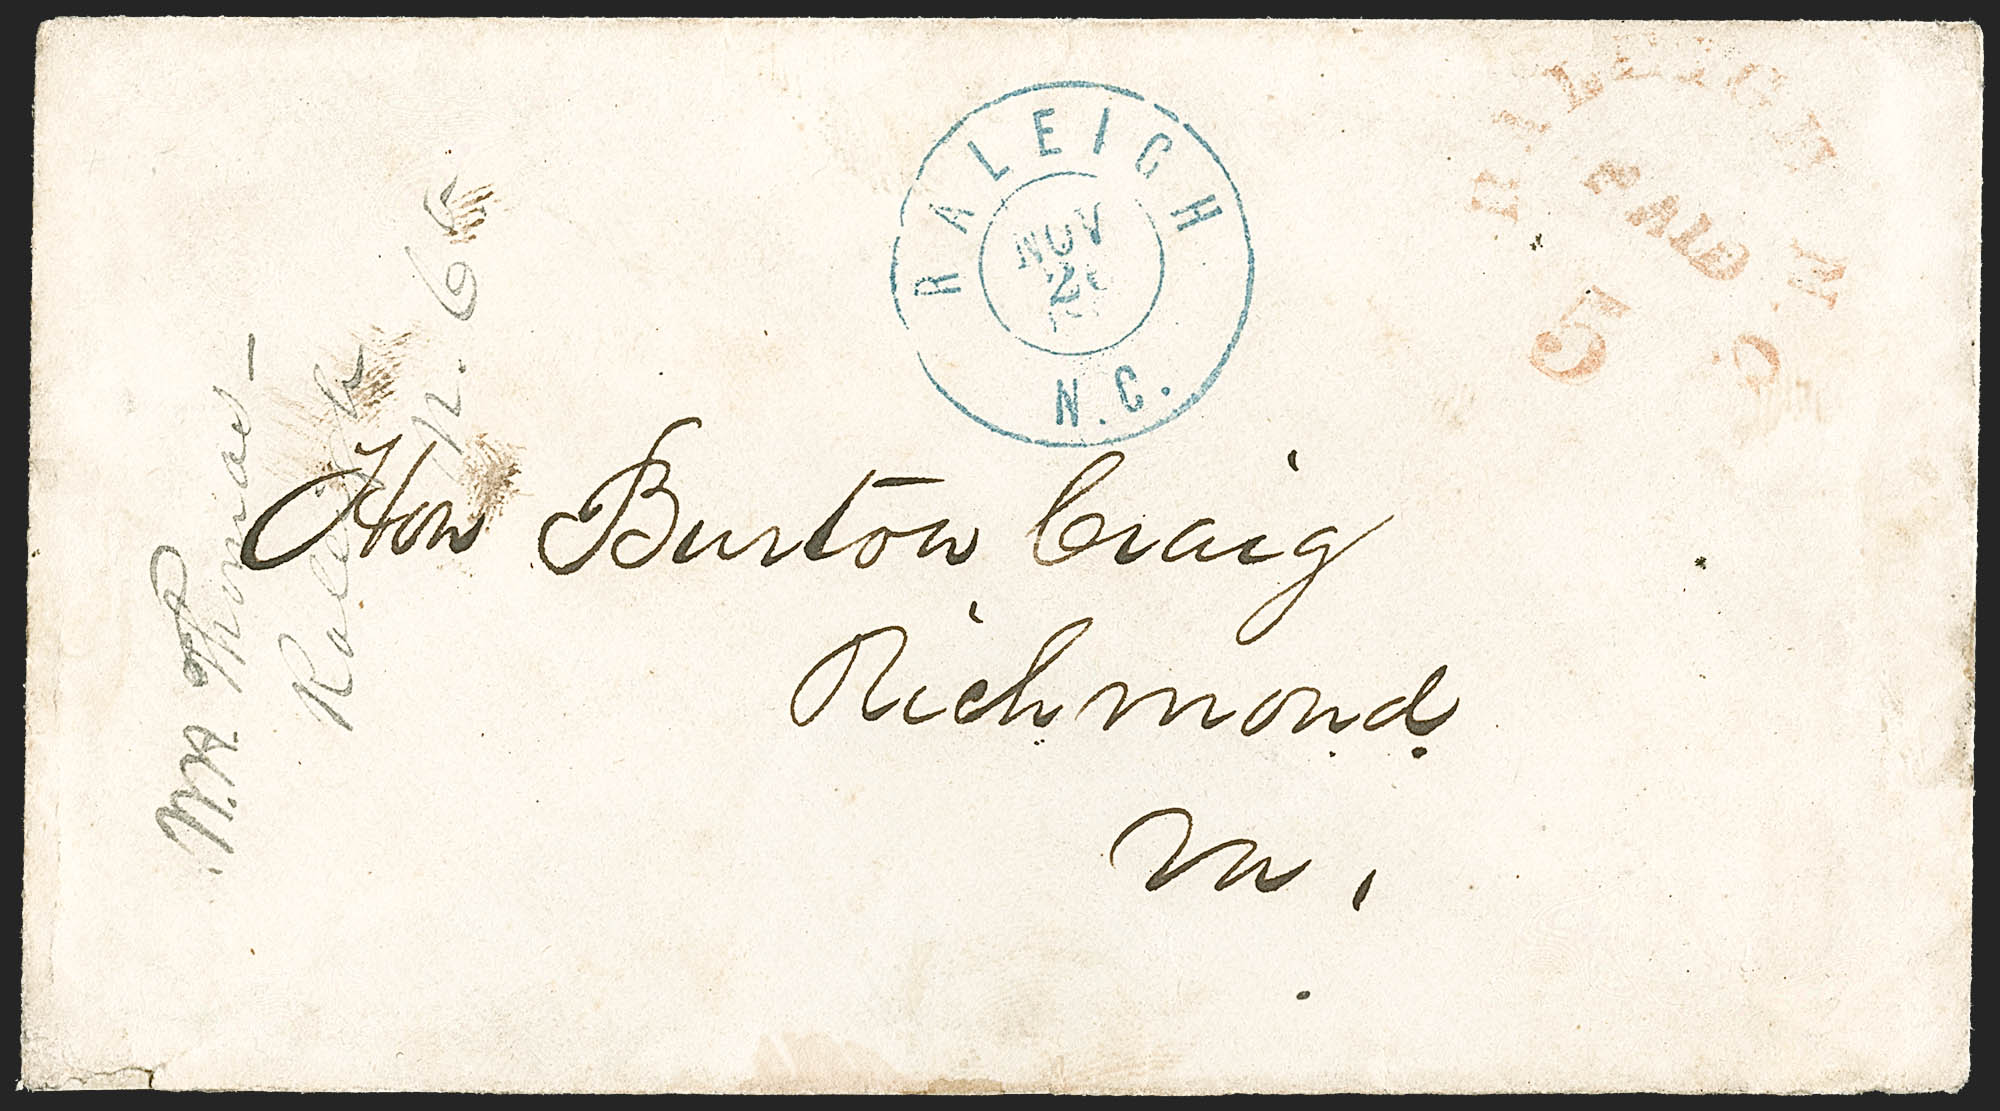 RALEIGH
NOV
N.C.
RALEIGH N C
PAID
5
Hon Burton Craig
Richmond
Va.
W.H. Thomas –
Raleigh
N. C